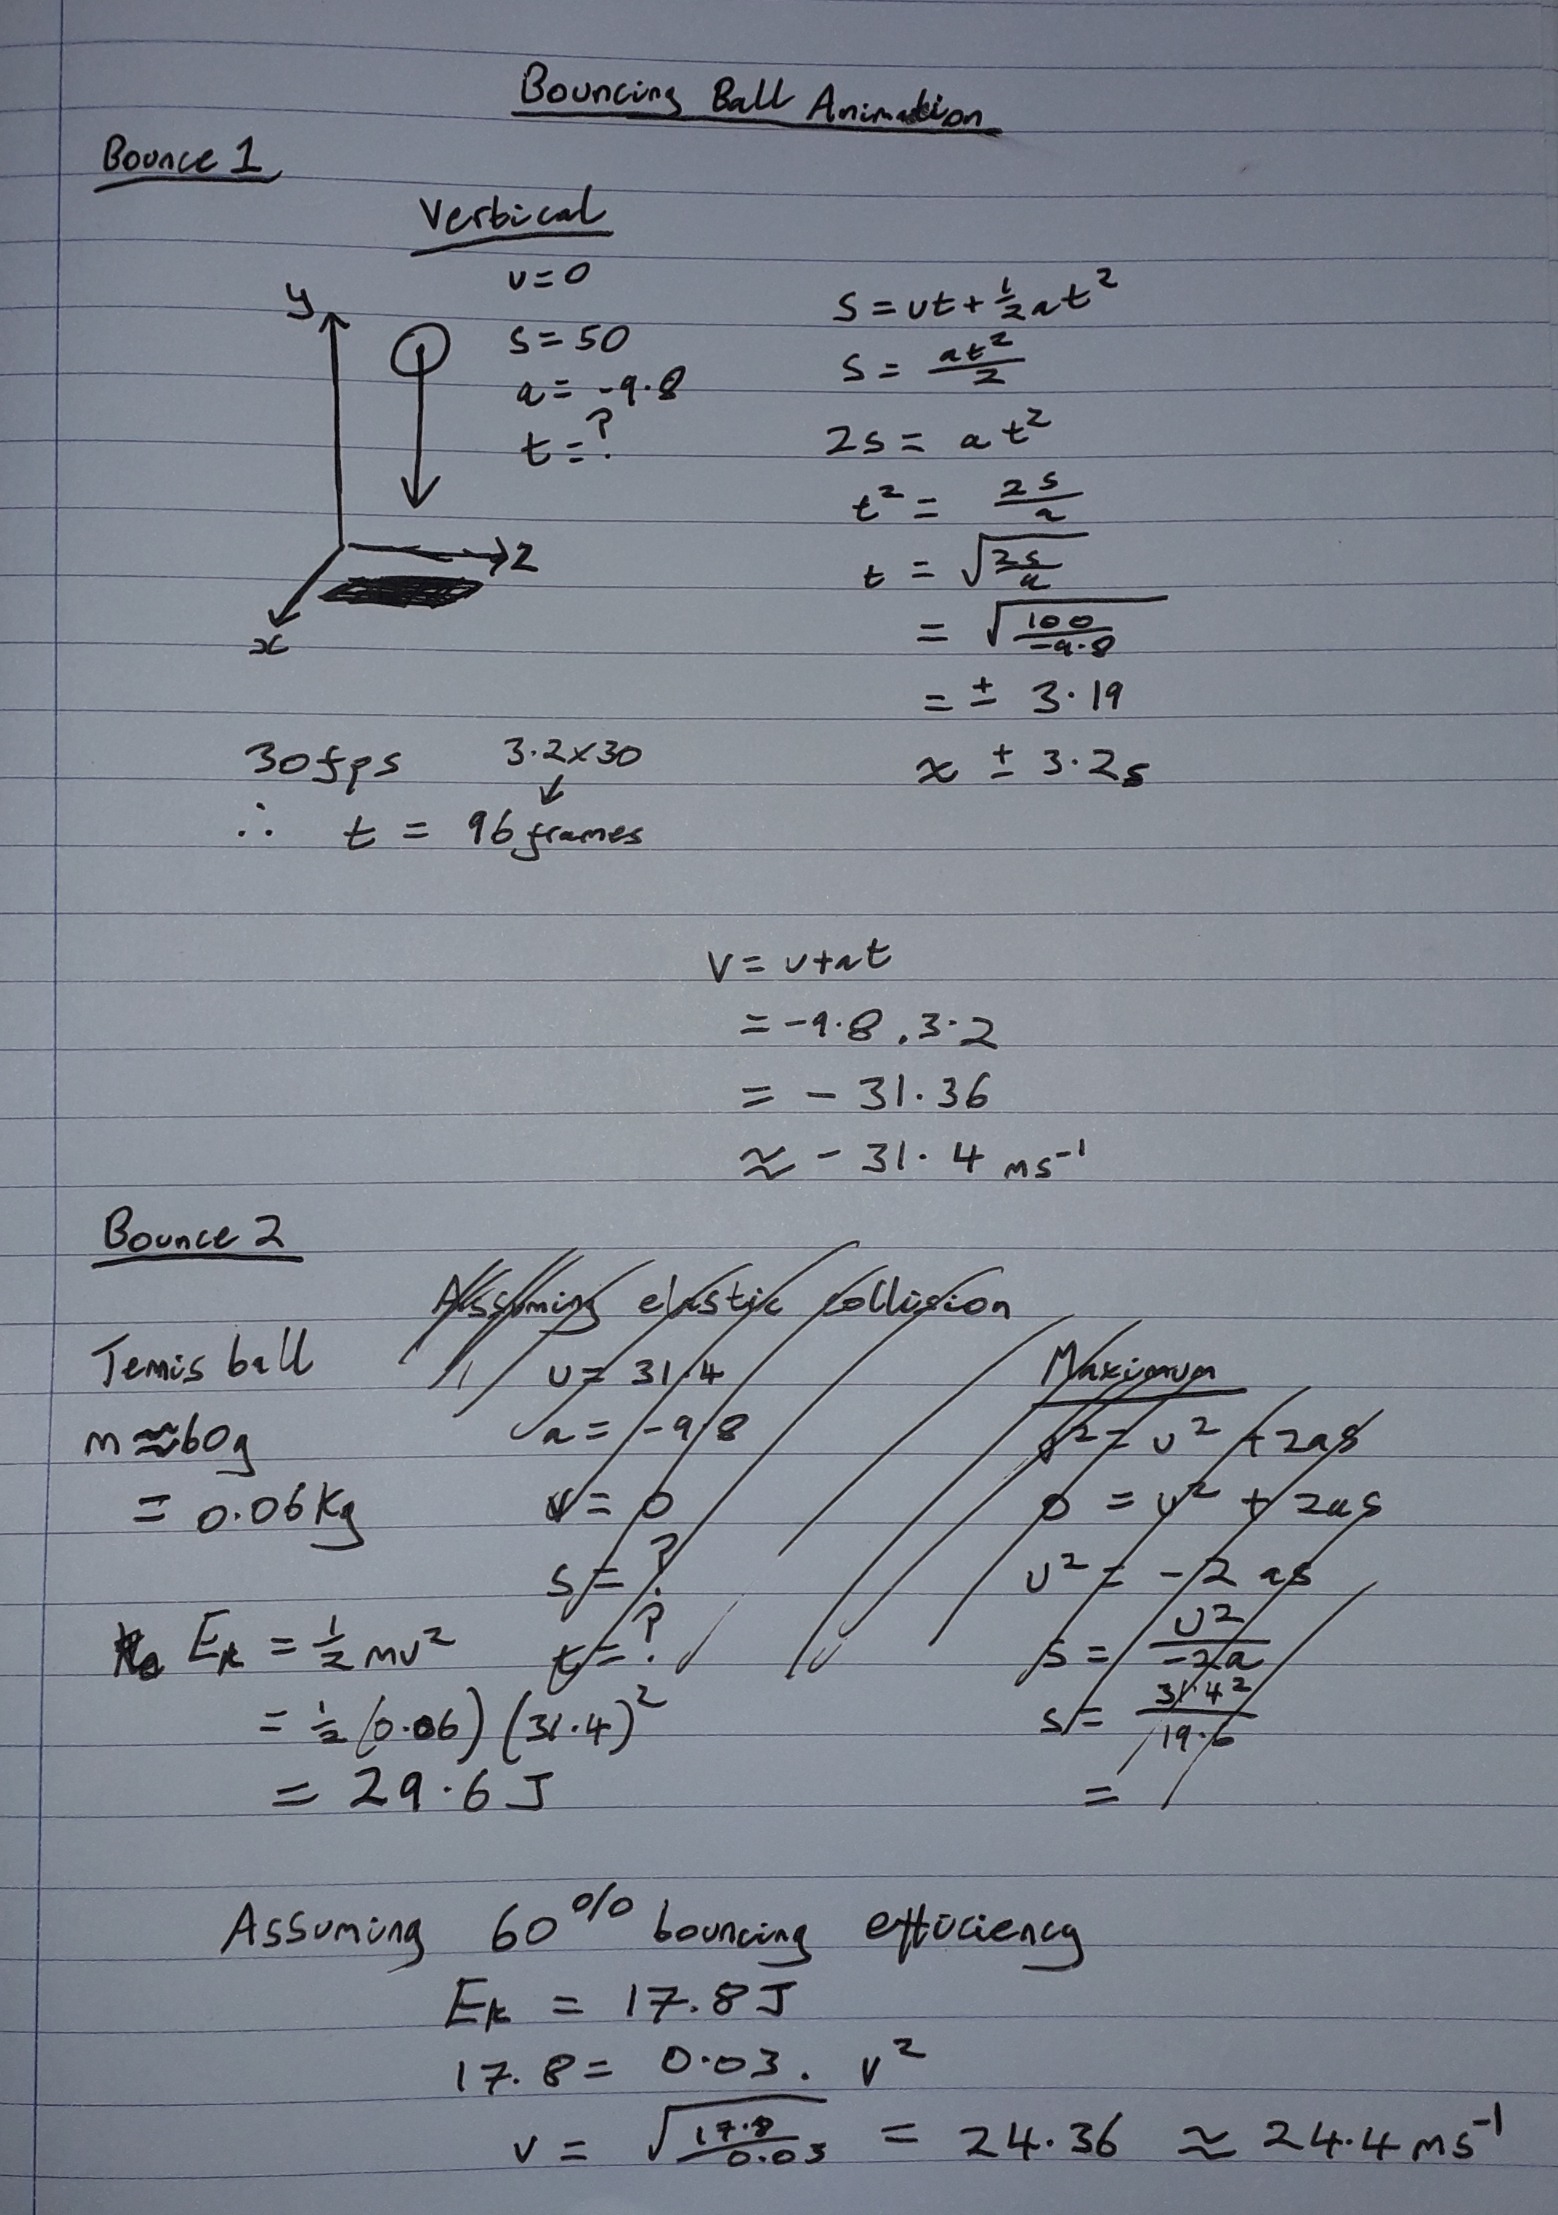 Bouncing Ball Animation
Bounce 1
Vertical
u=0
s=50
a= -9.8
t=?
y
z
x
s=ut+½at²
s= at²/2
2s= at²
t²= 2s/a
t = √(2s/a)
= √(100/-9.8)
= ± 3.19
≈ ± 3.2s
30fps 3.2×30
↓
∴ t = 96 frames
v= u+at
= -9.8 . 3.2
= - 31.36
≈ - 31.4 ms⁻¹
Bounce 2
Assuming elastic collision
Tennis ball
m≈60g
= 0.06kg
u= 31.4
a= -9.8
v= 0
s= ?
t= ?
Maximum
v²= u² +2as
0 = u² + 2as
u² = -2as
s= u²/-2a
s= 31.4²/19.6
=
Eₖ = ½mv²
= ½(0.06)(31.4)²
= 29.6 J
Assuming 60% bouncing efficiency
Eₖ = 17.8J
17.8= 0.03. v²
v= √(17.8/0.03) = 24.36 ≈ 24.4 ms⁻¹